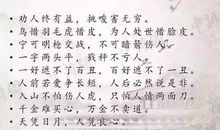 · 劝人终有益,挑唆害无穷。
· 鸟惜羽毛虎惜皮,为人处世惜脸皮。
· 宁可明枪交战,不可暗箭伤人。
· 一字两头平,我秤不亏人。
· 一好遮不了百丑,百好遮不了一丑。
· 人前若爱争长短,人后必然说是非。
· 入山不怕伤人虎,只怕人情两面刀。
· 千金难买心,万金不卖道。
· 天凭日月,人凭良心。